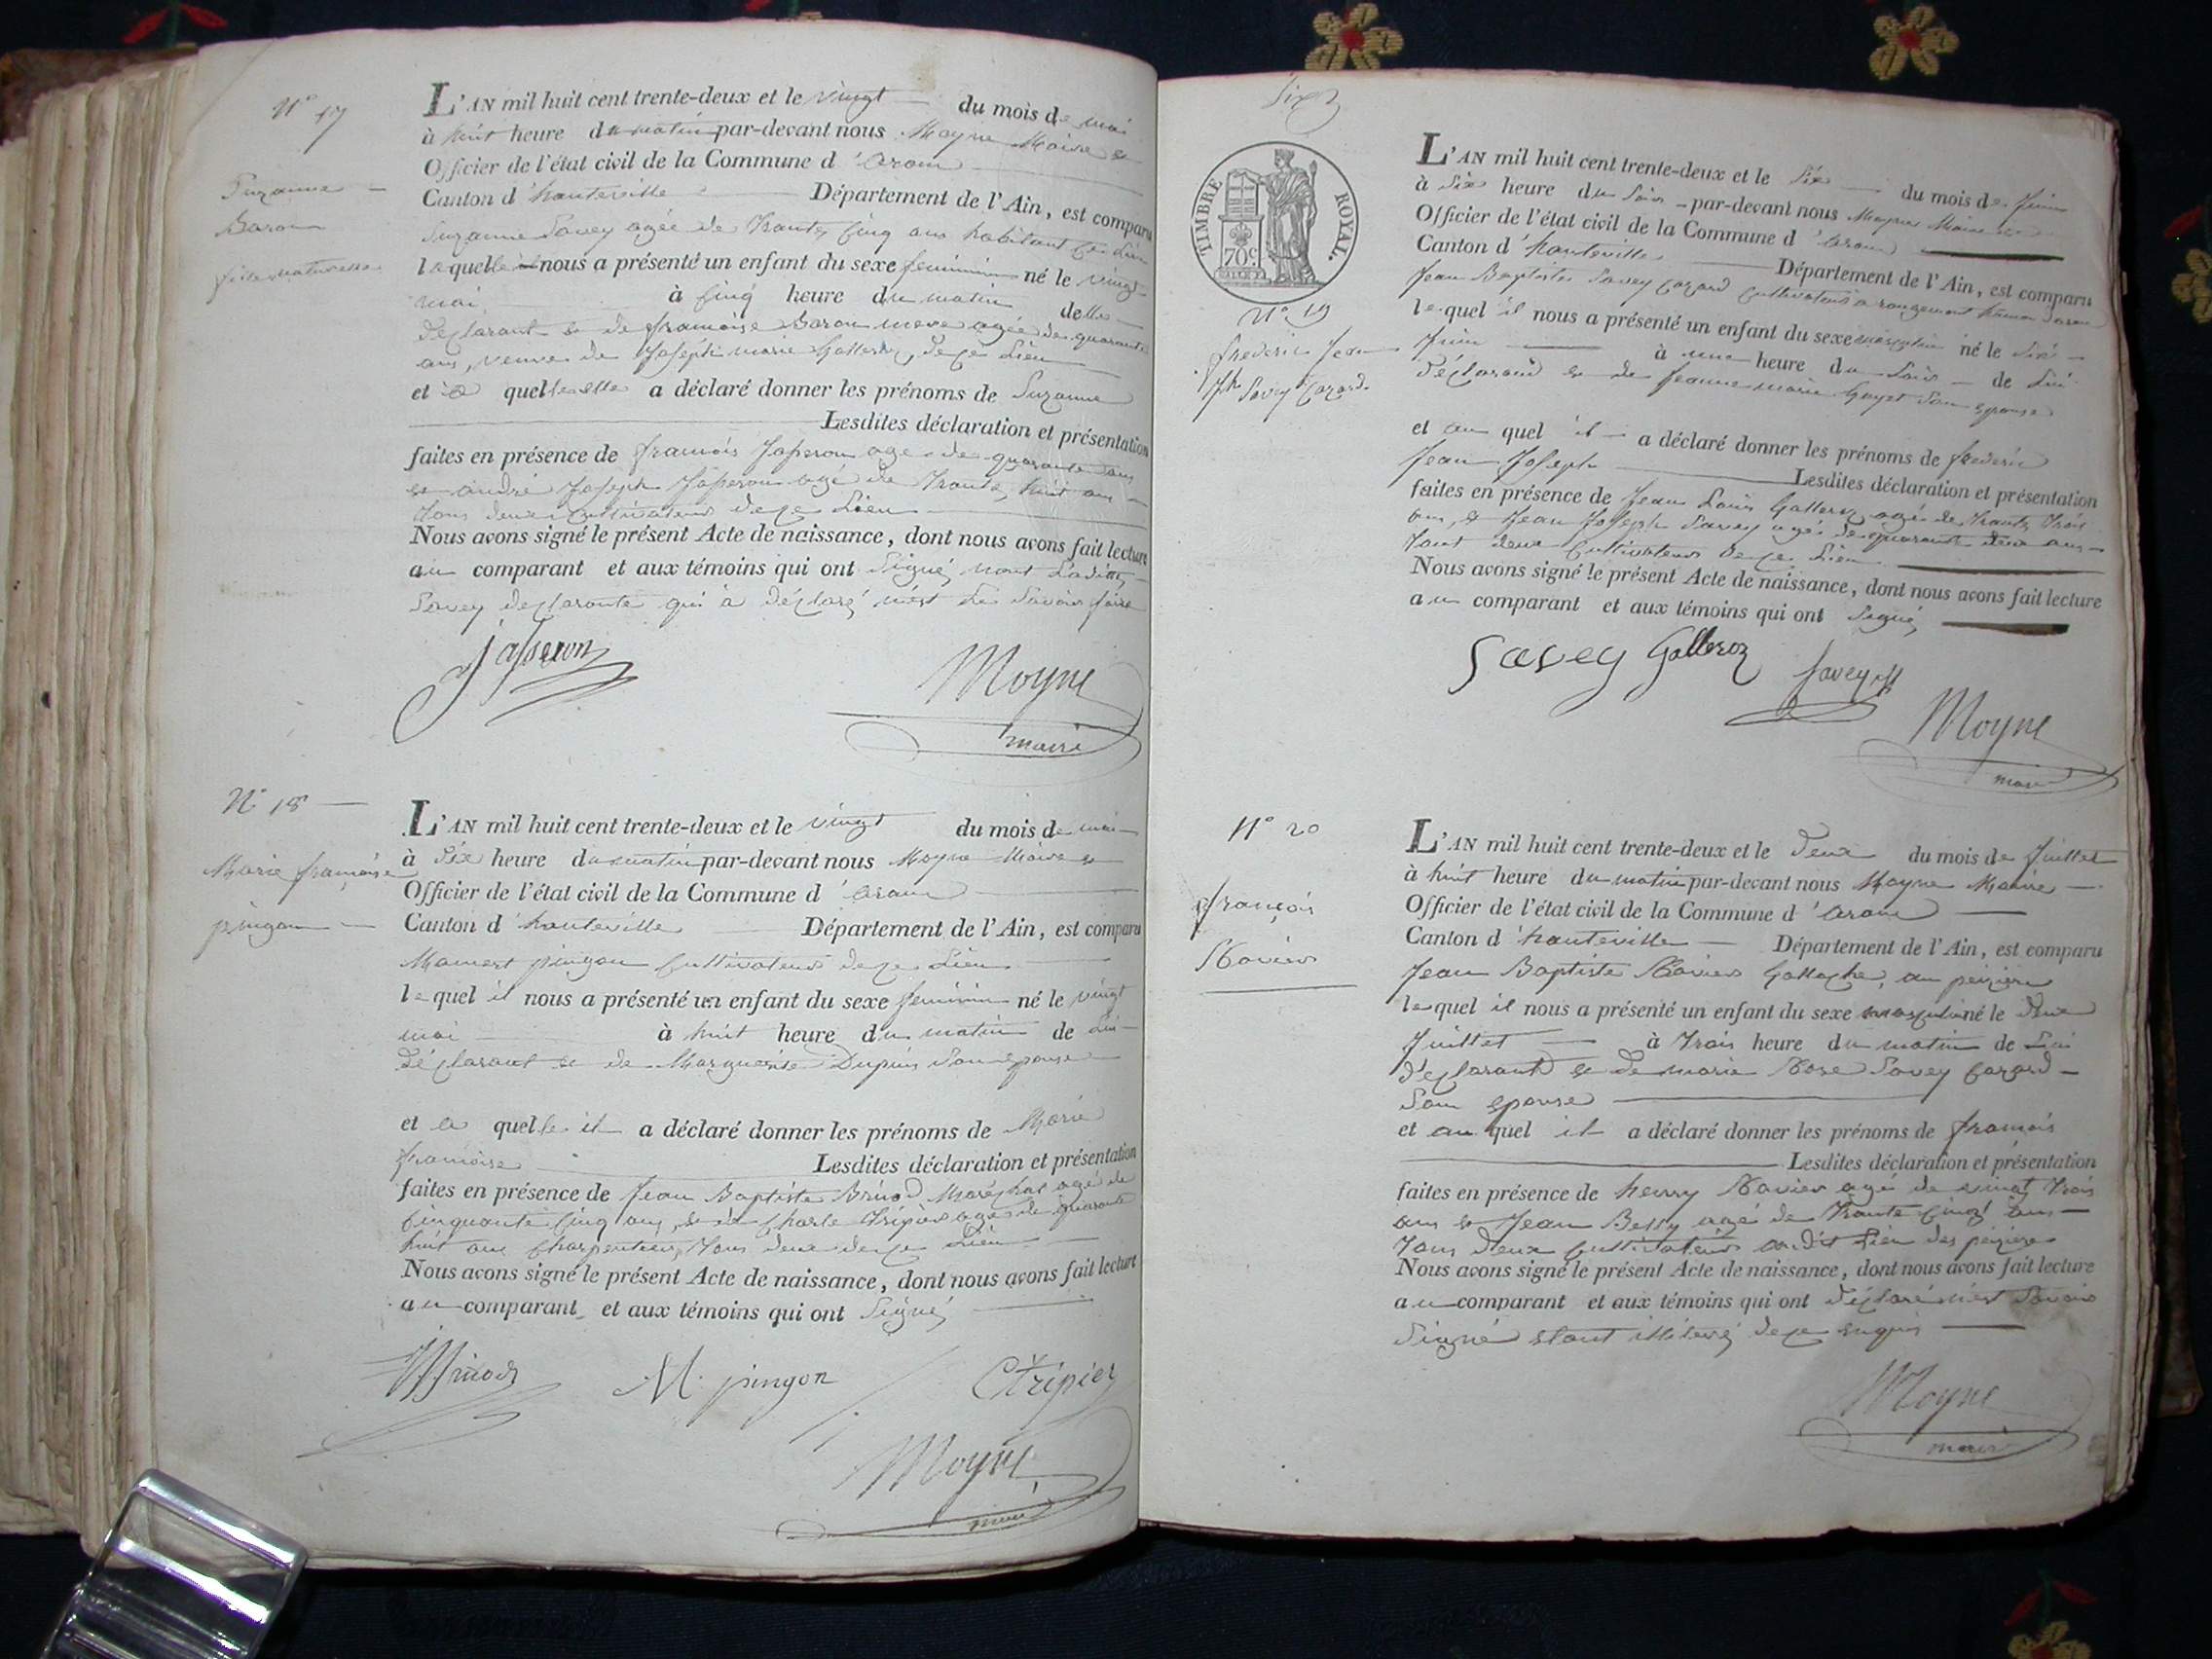 N° 17
Suzanne
Baron
fille naturelle
L'AN mil huit cent trente-deux et le vingt du mois de mai
à huit heure du matin par-devant nous Moyne Maire et
Officier de l'état civil de la Commune d'aranc
Canton d'hauteville Département de l'Ain, est comparu
Suzanne Savey agée de Trante Cinq ans habitant ce Lieu
laquelle nous a présenté un enfant du sexe feminin né le vingt
mai à Cinq heure du matin delle
déclarant et de françoise Baron mere agée de quarante
ans, veuve de Joseph marie Galleroz, dece Lieu
et a quelle elle a déclaré donner les prénoms de Suzanne
Lesdites déclaration et présentation
faites en présence de françois Jasseron age de quarante ans
et andré Joseph Jasseron agé de Trante huit ans
Tous deux Cultivateurs dece Lieu
Nous avons signé le présent Acte de naissance, dont nous avons fait lecture
au comparant et aux témoins qui ont Signé, nont Laditte
Savey declarante qui a déclaré n'est Le Savoir faire
Jasseron
Moyne
maire
N° 18
Marie françoise
pingon
L'AN mil huit cent trente-deux et le vingt du mois de mai
à Six heure du matin par-devant nous Moyne Maire et
Officier de l'état civil de la Commune d'aranc
Canton d'hauteville Département de l'Ain, est comparu
Mamert pingon Cultivateur dece Lieu
lequel il nous a présenté un enfant du sexe feminin né le vingt
mai à huit heure du matin de Lui
Déclarant et de Marguerite Dupuis Son epouse
et a quelle il a déclaré donner les prénoms de Marie
françoise Lesdites déclaration et présentation
faites en présence de Jean Baptiste Brinod Maréchal agé de
Cinquante Cinq ans, et de Charle Tripier age de quarante
huit ans Charpentier, Tous deux dece Lieu
Nous avons signé le présent Acte de naissance, dont nous avons fait lecture
au comparant et aux témoins qui ont Signé
M. pingon
C tripier
Moyne
maire
Six
TIMBRE ROYAL.
70c
N° 19
frederic Jean
Jh Savey Cozard
L'AN mil huit cent trente-deux et le Six du mois de Juin
à Six heure du Soir par-devant nous Moyne Maire et
Officier de l'état civil de la Commune d'aranc
Canton d'hauteville Département de l'Ain, est comparu
Jean Baptiste Savey Cozard Cultivateur a rougemont daranc
lequel il nous a présenté un enfant du sexe masculin né le Six
Juin à une heure du Soir de Lui
déclarant et de Jeanne marie Goyet Son epouse
et au quel il a déclaré donner les prénoms de frederic
Jean Joseph Lesdites déclaration et présentation
faites en présence de Jean Louis Galleroz agé de Trante Trois
ans, et Jean Joseph Savey agé de quarante deux ans
Tout deux Cultivateurs dece Lieu
Nous avons signé le présent Acte de naissance, dont nous avons fait lecture
au comparant et aux témoins qui ont Signé
Savey Galleroz Savey
Moyne
maire
N° 20
françois
Xavier
L'AN mil huit cent trente-deux et le Deux du mois de Juillet
à huit heure du matin par-devant nous Moyne Maire
Officier de l'état civil de la Commune d'aranc
Canton d'hauteville Département de l'Ain, est comparu
Jean Baptiste Xavier Gallache, au peizière
lequel il nous a présenté un enfant du sexe masculin né le deux
Juillet à Trois heure du matin de Lui
déclarant et de marie Rose Savey Cozard
Son epouse
et au quel il a déclaré donner les prénoms de françois
Lesdites déclaration et présentation
faites en présence de henry Xavier agé de vingt Trois
ans et Jean Bessy agé de Trante Cinq ans
Tous deux Cultivateurs audit Lieu des peizière
Nous avons signé le présent Acte de naissance, dont nous avons fait lecture
au comparant et aux témoins qui ont déclaré n'est Savoir
Signé etant illiteré dece
Moyne
maire